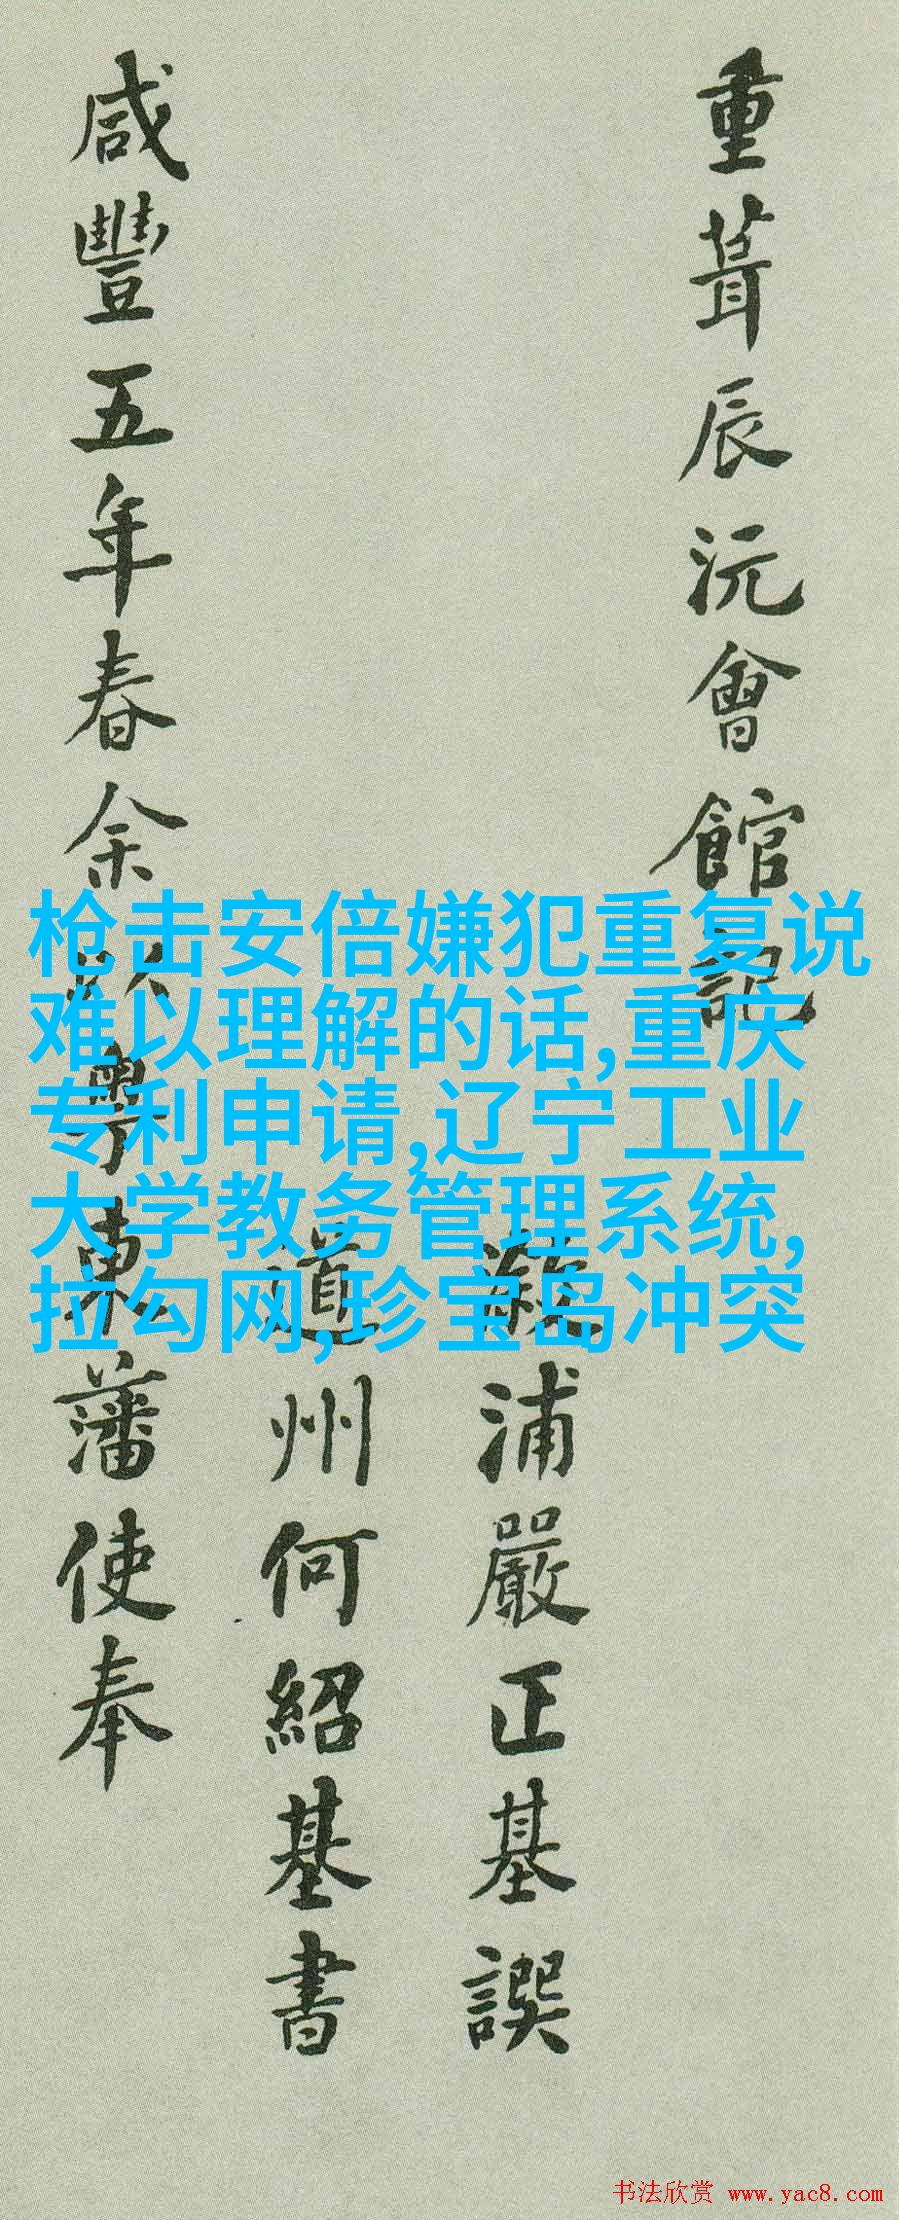 重葺辰沅會館記
漵浦嚴正基譔
道州何紹基書
咸豐五年春余以粤東藩使奉
枪击安倍嫌犯重复说
难以理解的话,重庆
专利申请,辽宁工业
大学教务管理系统,
拉勾网,珍宝岛冲突
书法欣赏 www.yac8.com